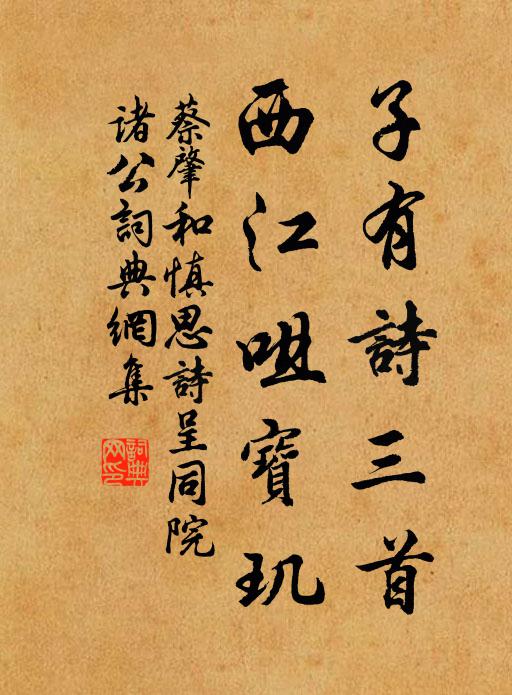 子有詩三首
西江咀寶玑
蔡肇和慎思詩呈同院
諸公詞典網集
詞典
网印